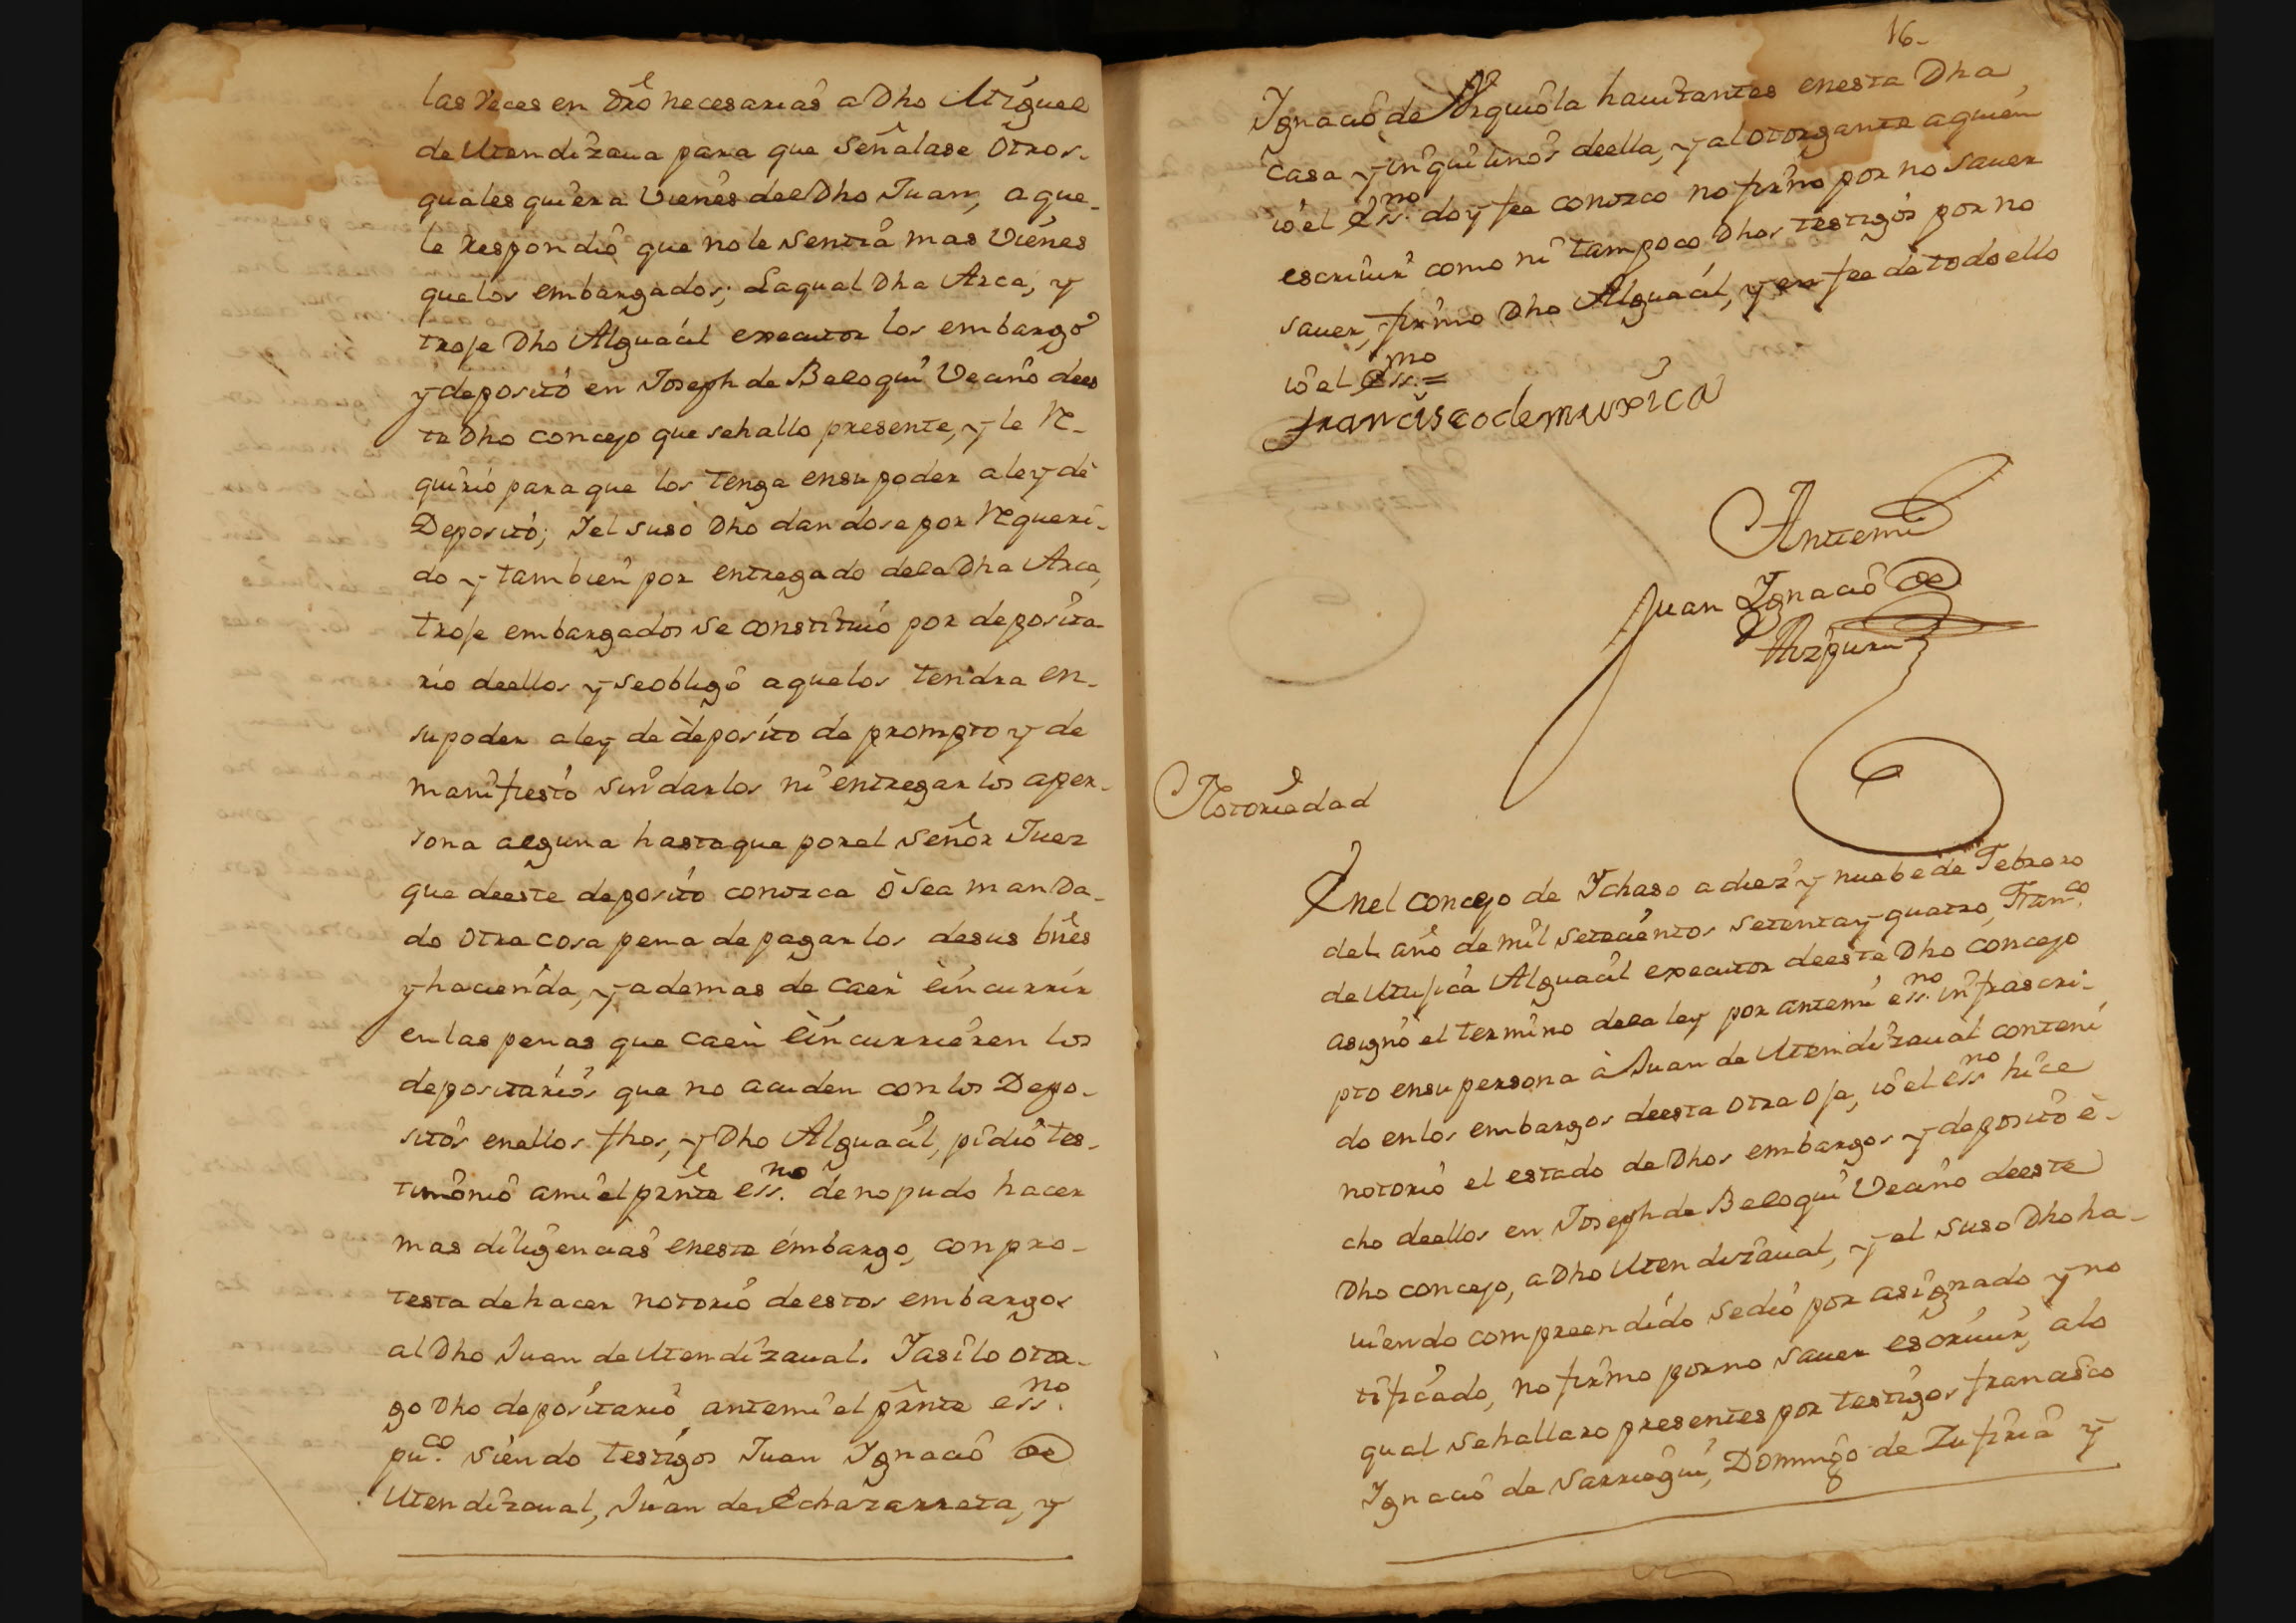 las veces en dr̃o necesarias a Dho Miguel
de Mendizaua para que señalase otros
quales quiera vienes del Dho Juan, a que
le respondiò que no le sentia mas vienes
que los embargados; Laqual Dha Arca, y
troje Dho Alguacil executor los embargò
y depositò en Joseph de Beloqui Vecino dees
te Dho concejo que se hallo presente, y le Re-
quiriò para que los tenga ensu poder a ley de
Deposito; Iel suso Dho dandose por Requeri-
do y tambien por entregado dela Dha Arca,
troje embargados se constituiò por deposita-
rio deellos y seobligò aquelos tendra en-
su poder a ley de deposito de prompto y de
manifiesto sin darlos ni entregarlos aper-
sona alguna hasta que por el Señor Juez
que deeste deposito conozca ô sea manda-
do otra cosa pena de pagarlos desus bñes
y hacienda, y ademas de caer è incurrir
en las penas que caen è incurrieren los
depositarios que no acuden con los Depo-
sitos enellos fhos, y Dho Alguacil, pidiò tes-
timonio ami el pr̃nte ess.no de no pudo hacer
mas diligencias enesta embargo, con pro-
testa de hacer notorio deestos embargos
al Dho Juan de Mendizaual. Iasilo otor-
go Dho depositario antemi el pr̃nte ess.no
pu.co siendo testigos Juan Ignacio de
Mendizaual, Juan de Echazarreta, y
16-
Ignacio de Urquiola hauitantes enesta Dha
casa y inquilinos deella, y al otorgante a quien
io el Ess.no doy fee conozco no firmo por no sauer
escriuir como ni tampoco Dhos testigos por no
sauer, firmo Dho Alguacil, y en fee de todo ello
io el Ess.no =
francisco de muxica
Antemi
Juan Ignacio de
Aizpuru
Notoriedad
Enel concejo de Ichaso a diez y nuebe de Febrero
del año de mil setecientos setenta y quatro, Fran.co
de Mujica Alguacil executor deeste Dho concejo
asignò el termino dela ley por antemi ess.no infrascri-
pto ensu persona à Juan de Mendizaual conteni
do en los embargos deesta otra oja, io el ess.no hice
notorio el estado de Dhos embargos y deposito e-
cho deellos en Joseph de Beloqui Vecino deeste
Dho concejo, a Dho Mendizaual, y el suso Dho ha-
uiendo compreendido sediò por asignado y no
tificado, no firmo por no sauer escriuir, a lo
qual se hallaro presentes por testigos francisco
Ignacio de Sarriegui, Domingo de Zufiria y